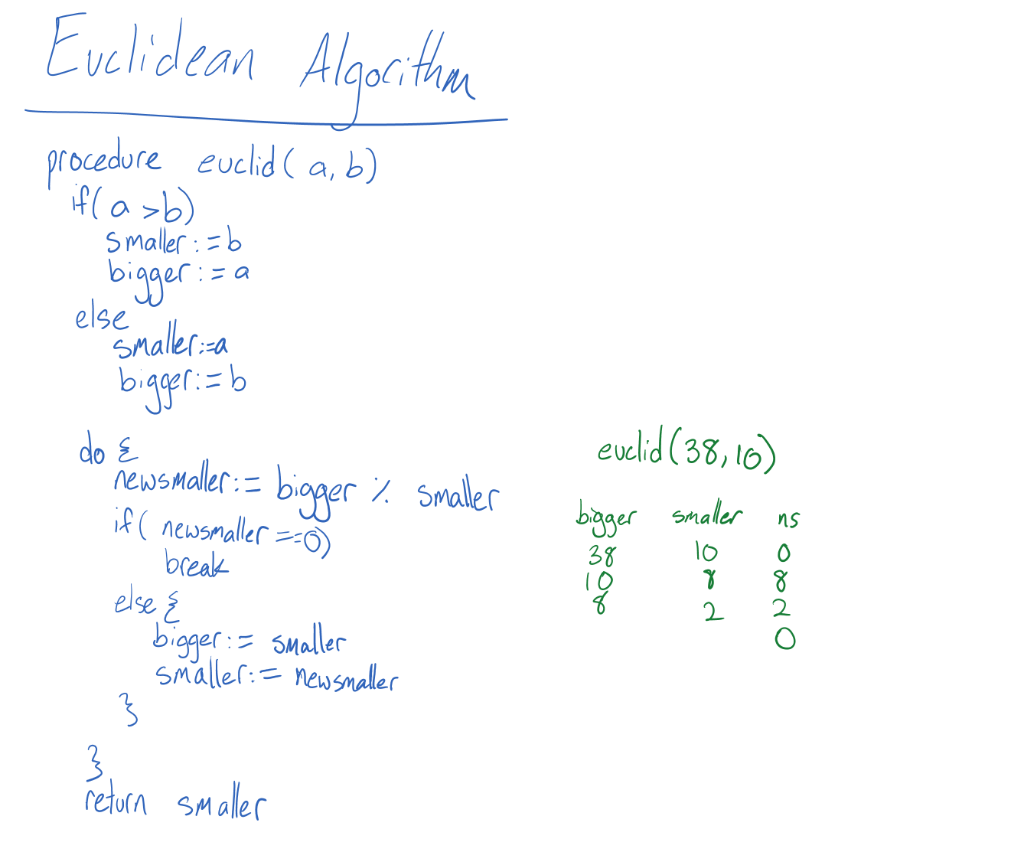 Euclidean Algorithm
procedure euclid( a, b)
if( a >b)
smaller:=b
bigger:=a
else
smaller:=a
bigger:=b
do {
newsmaller:= bigger % smaller
if( newsmaller ==0)
break
else {
bigger:= smaller
smaller:= newsmaller
}
}
return smaller
euclid(38,10)
bigger smaller ns
38 10 0
10 8 8
8 2 2
0